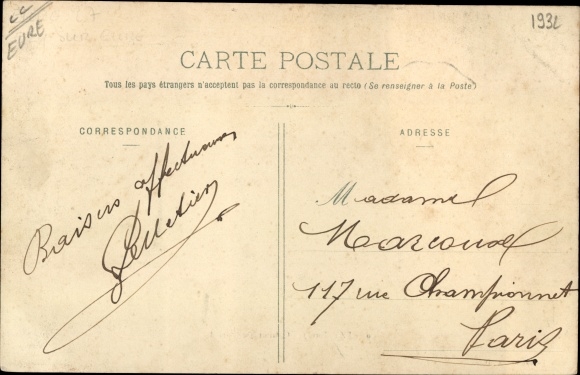 EURE
193L
CARTE POSTALE
Tous les pays étrangers n'acceptent pas la correspondance au recto (Se renseigner à la Poste)
CORRESPONDANCE
Baisers affectueux
Pelletier
ADRESSE
Madame
117 rue Championnet
Paris